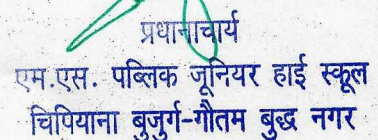 प्रधानाचार्य
एम.एस. पब्लिक जूनियर हाई स्कूल
चिपियाना बुजुर्ग-गौतम बुद्ध नगर